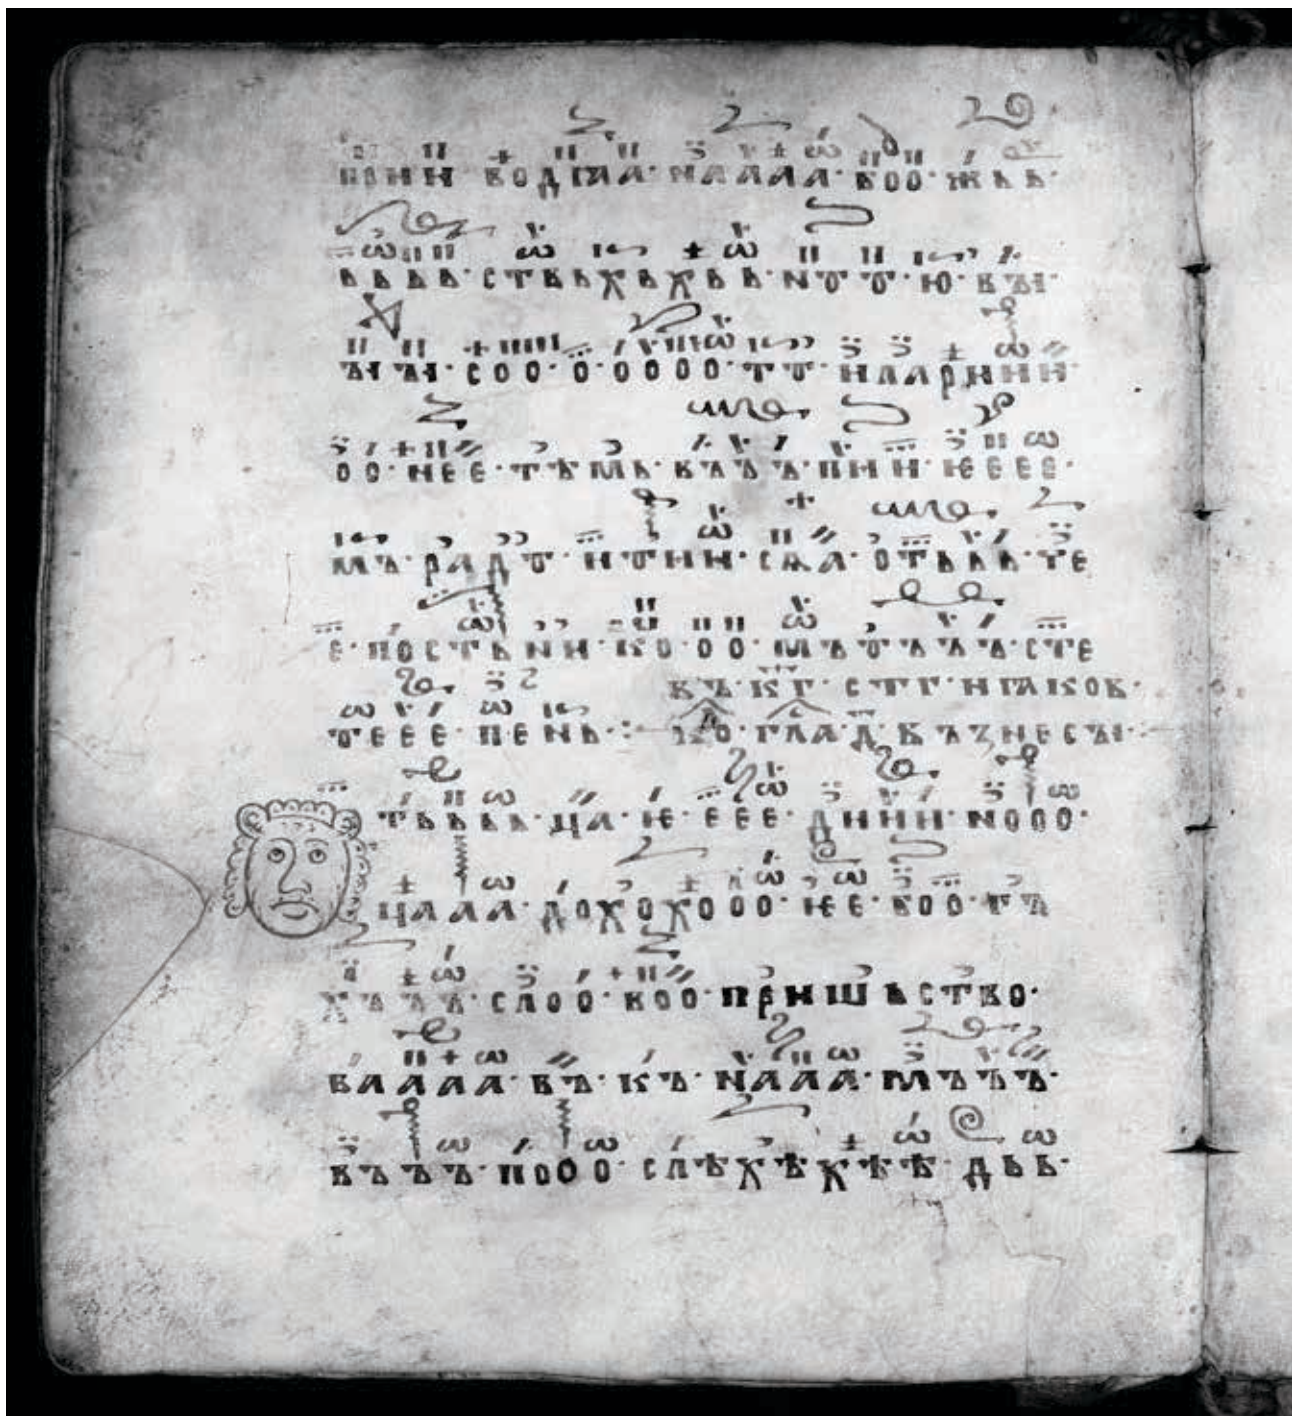 прии·воділа·наааа·воо·жьь·
ьььь·ствьхьхьь·nоѵоѵ·ю·въі·
ъі·ъі·соо·о·оооо·тоѵ·илариии·
оо·нее·тѣмь·въъъ·пии·ѥеее·
мъ·радоѵ·итии·сѧа·отььь·те
е·постьни·ко·оо·мъ·тъъъ·сте
въ·кг҃·стг҃·ниіаков·
теее·пень·
ко·гла·д҃·възнесъі·
тььь·ца·ѥ·еее·дини·нооо·
цааа·дохохооо·ѥе·воо·гъ
хъъъ·слоо·воо·пришьство·
ваааа·въ·къ·нааа·мъъъ·
въъъ·пооо·слѣхѣхѣѣ·дьь·